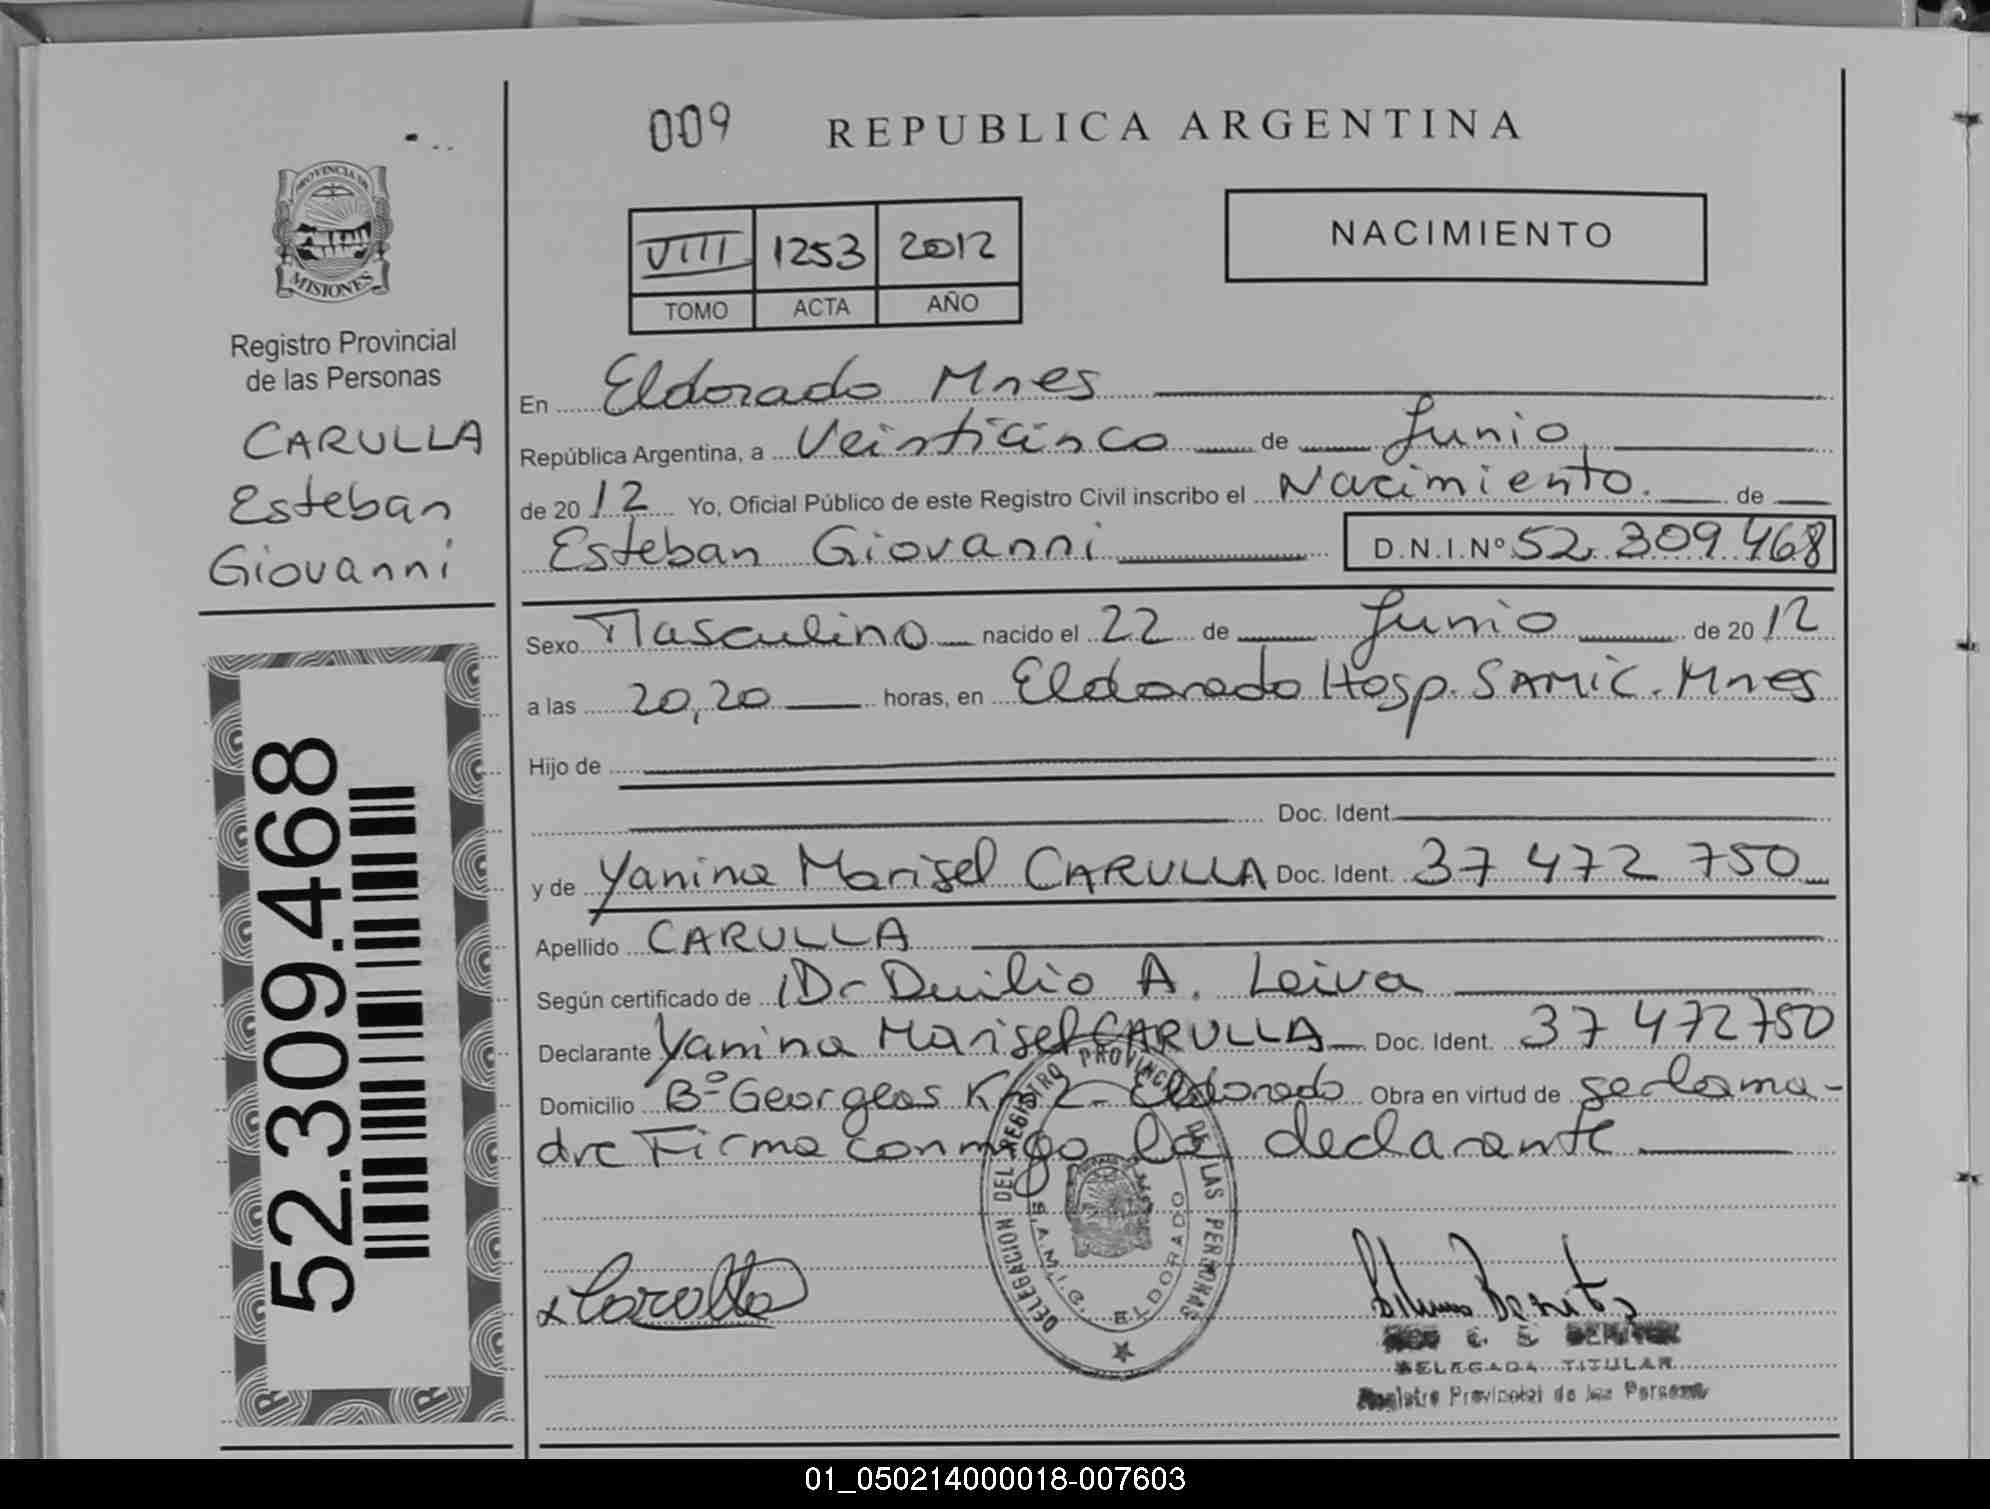 009 REPUBLICA ARGENTINA
PROVINCIA DE
MISIONES
Registro Provincial
de las Personas
CARULLA
Esteban
Giovanni
52.309.468
VIII 1253 2012
TOMO ACTA AÑO
NACIMIENTO
En Eldorado Mnes
República Argentina, a Veinticinco de Junio
de 2012 Yo, Oficial Público de este Registro Civil inscribo el Nacimiento. de
Esteban Giovanni D.N.I.Nº 52.309.468
Sexo Masculino nacido el 22 de Junio de 2012
a las 20,20 horas, en Eldorado Hosp. SAMIC. Mnes
Hijo de
Doc. Ident.
y de Yanina Marisel CARULLA Doc. Ident. 37 472 750
Apellido CARULLA
Según certificado de Dr Duilio A. Leiva
Declarante Yanina Marisel CARULLA Doc. Ident. 37 472750
Domicilio Bº Georgeos Km 2 - Eldorado Obra en virtud de ser la ma-
dre Firma conmigo la declarante
DELEGACION DEL REGISTRO PROVINCIAL DE LAS PERSONAS
S.A.M.I.C. ELDORADO
x Carulla
DELEGADA TITULAR
Registro Provincial de las Personas
01_050214000018-007603